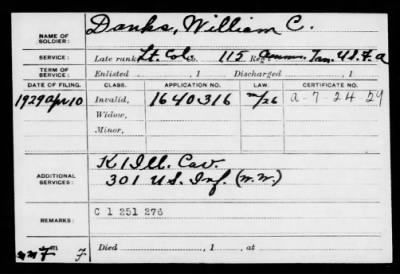 NAME OF SOLDIER: Danks, William C.
SERVICE: Late rank, Lt. Col. 115 Reg Amm. Tn. U.S.A
TERM OF SERVICE: Enlisted , 1 Discharged , 1
DATE OF FILING. CLASS. APPLICATION NO. LAW. CERTIFICATE NO.
1929 Apr 10 Invalid, 1640316 m/26 a-7 24 29
Widow,
Minor,
ADDITIONAL SERVICES: K 1 Ill. Cav.
301 U.S. Inf. (W.W.)
REMARKS: C 1 251 276
Died , 1 , at